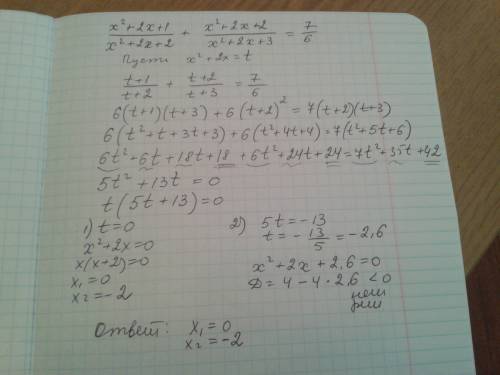 (x²+2x+1)/(x²+2x+2) + (x²+2x+2)/(x²+2x+3) = 7/6
Пусть x²+2x=t
(t+1)/(t+2) + (t+2)/(t+3) = 7/6
6(t+1)(t+3)+6(t+2)²=7(t+2)(t+3)
6(t²+t+3t+3)+6(t²+4t+4)=7(t²+5t+6)
6t²+6t+18t+18+6t²+24t+24=7t²+35t+42
5t²+13t=0
t(5t+13)=0
1) t=0
x²+2x=0
x(x+2)=0
x₁=0
x₂=-2
2) 5t=-13
t=-13/5=-2,6
x²+2x+2,6=0
D=4-4·2,6<0
нет
Ответ: x₁=0
x₂=-2